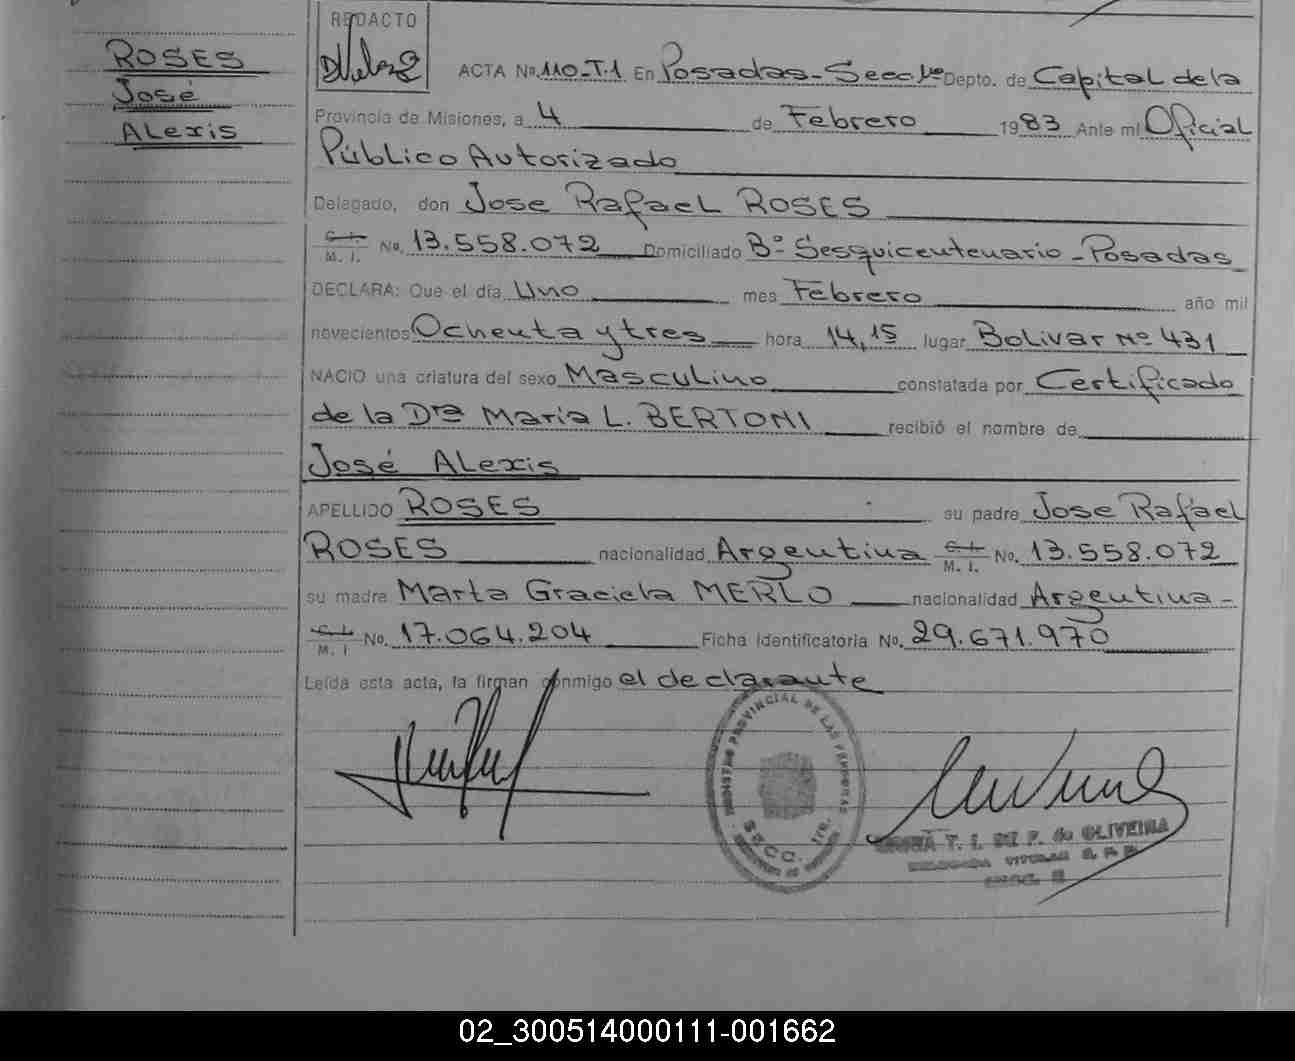 ROSES
José
ALexis
REDACTO
ACTA No. 110-T.1 En Posadas-Secc 1ra Depto. de Capital de la
Provincia de Misiones, a 4 de Febrero 1983 Ante mi Oficial
Público Autorizado
Delegado, don Jose Rafael ROSES
C. I.
M. I. No. 13.558.072 Domiciliado Bº Sesquicentenario-Posadas
DECLARA: Que el día Uno mes Febrero año mil
novecientos Ochenta y tres hora 14,15 lugar Bolivar Nº 431
NACIO una criatura del sexo Masculino constatada por Certificado
de la Dra Maria L. BERTONI recibió el nombre de
José ALexis
APELLIDO ROSES su padre Jose Rafael
ROSES nacionalidad Argentina C. I. M. I. No. 13.558.072
su madre Marta Graciela MERLO nacionalidad Argentina-
C. I. M. I No. 17.064.204 Ficha Identificatoria No. 29.671.970
Leída esta acta, la firman conmigo el declarante
REGISTRO PROVINCIAL DE LAS PERSONAS
SECC. 1ra.
T. I. DE P. de OLIVEIRA
DELEGADA TITULAR
02_300514000111-001662